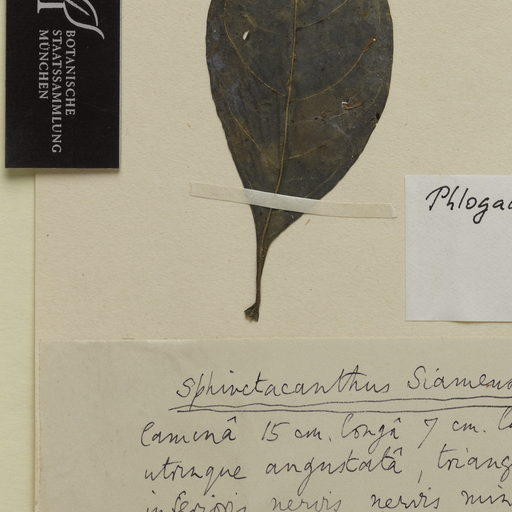 BOTANISCHE
STAATSSAMMLUNG
MÜNCHEN
Phlogac
Sphinctacanthus Siamens
laminâ 15 cm. longâ 7 cm. l
utrinque angustatâ, triang
inferioris nervis nervis min